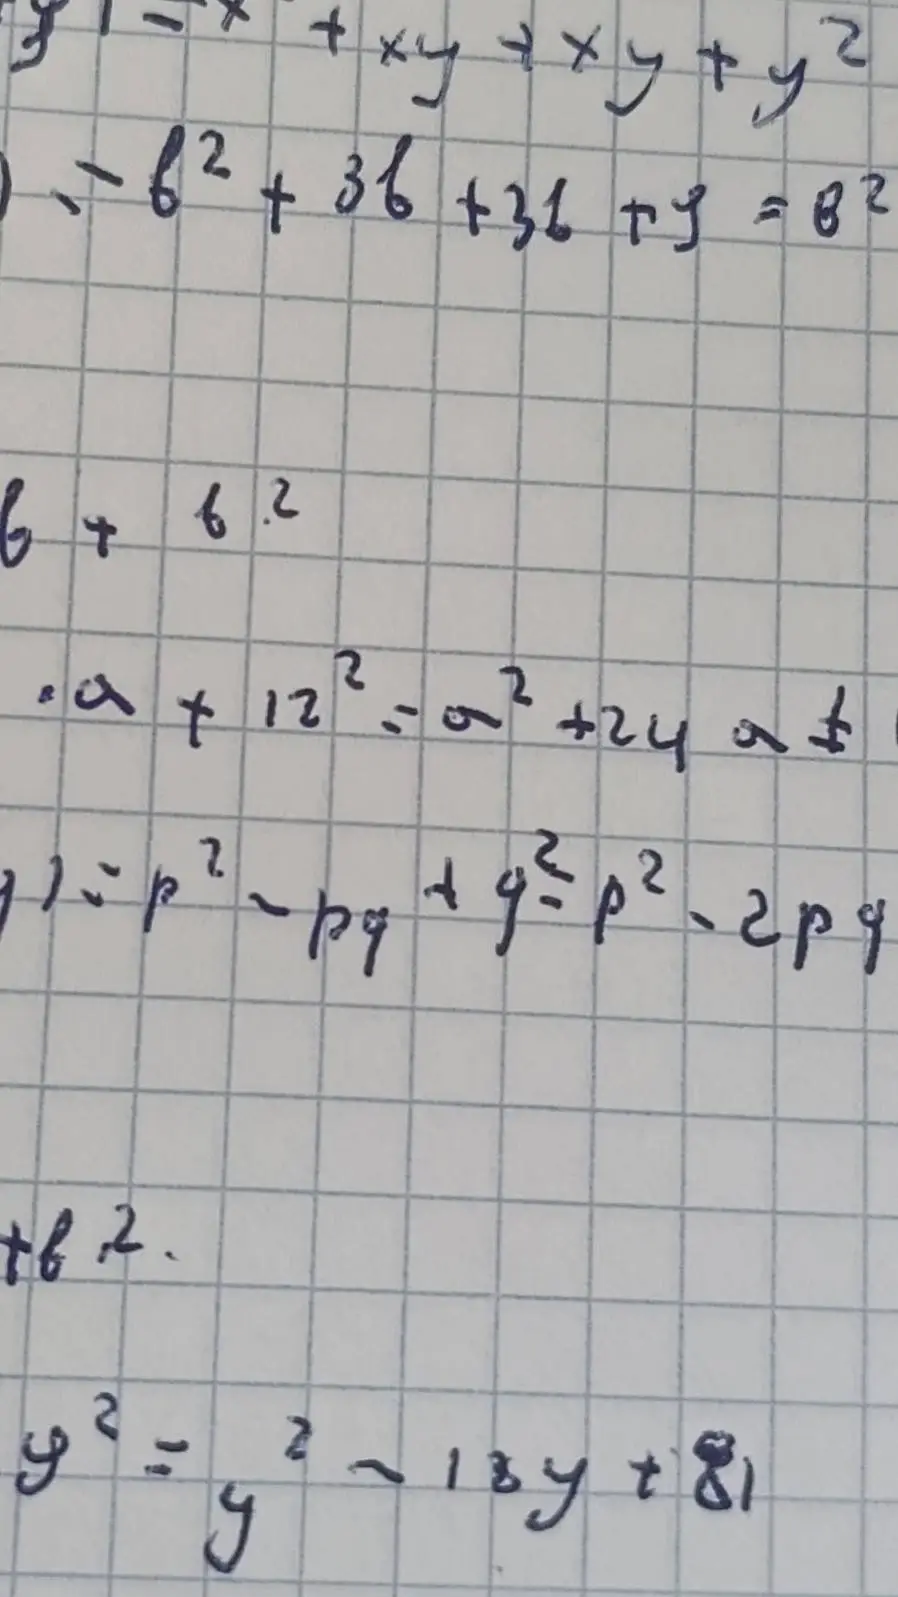 = x + xy + xy + y²
) = b² + 3b + 3b + 9 = b²
b + b²
· a + 12² = a² + 24 a +
) = p² - pq + q² = p² - 2pq
+ b².
y² = y² - 18y + 81